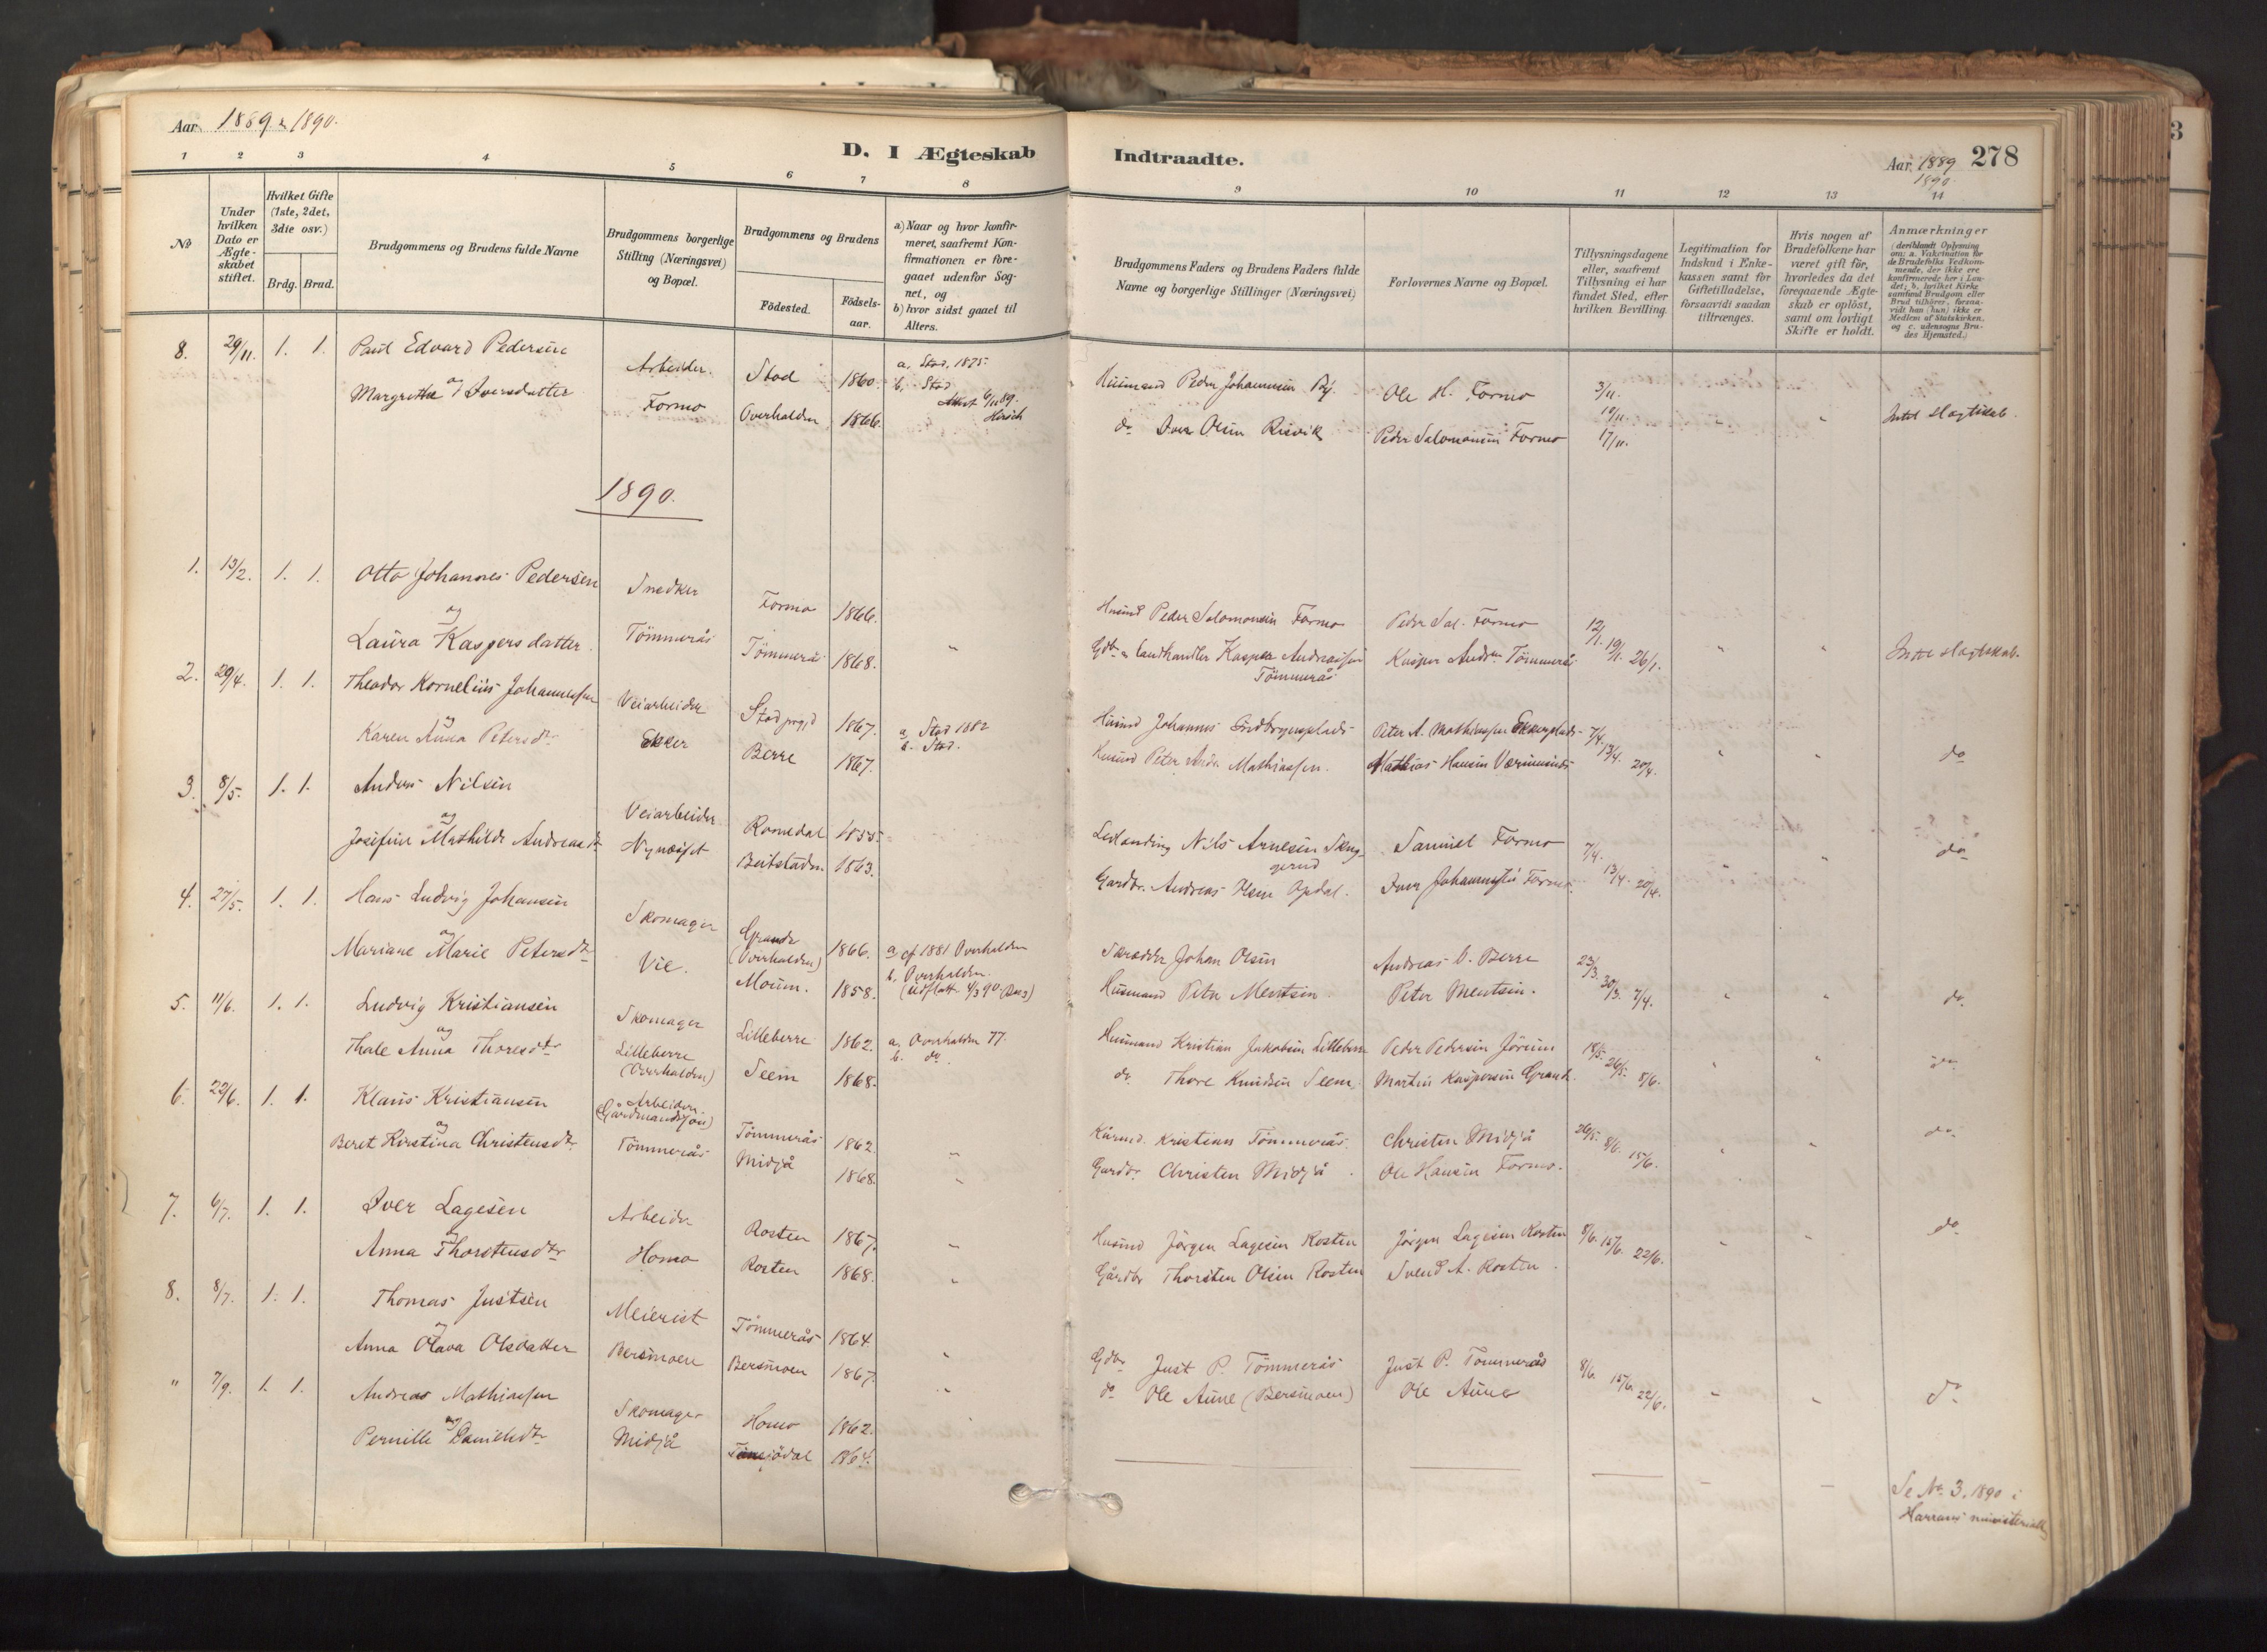 Aar 1889 & 1890.
D. I Ægteskab Indtraadte.
Aar 1889 278
1890.
1 2 3 4 5 6 7 8 9 10 11 12 13 14
No
Under hvilken Dato er Ægteskabet stiftet.
Hvilket Gifte (1ste, 2det, 3die osv.)
Brdg. Brud.
Brudgommens og Brudens fulde Navne
Brudgommens borgerlige Stilling (Næringsvei) og Bopæl.
Brudgommens og Brudens
Födested. Födselsaar.
a) Naar og hvor konfirmeret, saafremt Konfirmationen er foregaaet udenfor Sognet, og
b) hvor sidst gaaet til Alters.
Brudgommens Faders og Brudens Faders fulde Navne og borgerlige Stillinger (Næringsvei)
Forlovernes Navne og Bopæl.
Tillysningsdagene eller, saafremt Tillysning ei har fundet Sted, efter hvilken Bevilling.
Legitimation for Indskud i Enkekassen samt for Giftetilladelse, forsaavidt saadan tiltrænges.
Hvis nogen af Brudefolkene har været gift för, hvorledes da det foregaaende Ægteskab er oplöst, samt om lovligt Skifte er holdt.
Anmærkninger
(deriblandt Oplysning om: a. Vakcination for de Brudefolks Vedkommende, der ikke ere konfirmerede her i Landet; b. hvilket Kirkesamfund Brudgom eller Brud tilhörer, forsaavidt han (hun) ikke er Medlem af Statskirken, og c. udensogns Brudes Hjemsted.)
8. 29/11. 1. 1. Paul Edvard Pedersen Arbeider. Stod 1860. a. Stod. 1875. Husmand Peder Johannesen Ole H. Formo 3/11.
og b. Stod 10/11.
Margrethe Iversdatter Formo Overhalden 1866. Attest 6/11 89. Hirsch do Iver Olsen Risvik Peder Salomonsen Formo 17/11. " Intet Slægtskab.
1890.
1. 13/2. 1. 1. Otto Johannes Pedersen Snedker Formo 1866. Husmd Peder Salomonsen Formo Peder Sal. Formo 12/1. 19/1. 26/1.
og
Laura Kaspersdatter. Tömmerås Tömmerås 1868. " Gdbr & Landhandler Kasper Andreassen Tömmerås Kasper Andrsn Tömmerås " " Intet Slægtskab.
2. 29/4. 1. 1. Theodor Kornelius Johannessen Veiarbeider Stod prgjd 1867. a. Stod 1882 Husmd Johannes Peter A. Mathiassen 7/4. 13/4. 20/4.
og b. Stod.
Karen Anna Petersdtr Ekker Berre 1867. Husmd Peter Andr. Mathiassen. Mathias Hansen " " do
3. 8/5. 1. 1. Anders Nilsen Veiarbeider Romedal 1855. Nils Arnesen Samuel Formo 7/4. 13/4. 20/4.
og
Josefine Mathilde Andreasdtr Nynæset Beitstaden 1863. Gardbr. Andreas Olsen Opdal. Iver Johannessen Formo. " " do
4. 27/5. 1. 1. Hans Ludvig Johansen Skomager Grande (Overhalden) 1866. a. cf 1881 Overhalden Skrædder Johan Olsen Andreas C. Berre 23/3. 30/3. 7/4.
og b. Overhalden.
Mariane Marie Petersdtr Vie. Moum. 1858. Husmand Peter Mentsen. Peter Mentsen. " " do.
5. 11/6. 1. 1. Ludvig Kristiansen Skomager Lilleberre 1862. a. Overhalden 77. Husmand Kristian Jakobsen Lilleberre Peder Pedersen Jörum 18/5. 26/5. 8/6.
og b. do.
Thale Anna Thoresdtr Lilleberre (Overhalden) Seem 1868. do. Thore Knudsen Seem. Martin Kaspersen Grande. " " do
6. 22/6. 1. 1. Klaus Kristiansen Arbeider. (Gårdmandssön) Tömmerås 1862. " Kårmd. Kristian Tömmerås. Christen Midjå 26/5. 8/6. 15/6.
og
Beret Kirstina Christensdtr Tömmerås Midjå 1868. " Gardbr. Christen Midjå. Ole Hansen Formo. " " do.
7. 6/7. 1. 1. Iver Lagesen Arbeider Rosten 1867. " Husmd Jörgen Lagesen Rosten Jörgen Lagesen Rosten 8/6. 15/6. 22/6.
og
Anna Thorstensdtr Homo Rosten 1868. " Gårdbr Thorsten Olsen Rosten Svend A. Rosten. " " do
8. 8/7. 1. 1. Thomas Justsen Meierist Tömmerås 1864 " Gdbr Just P. Tömmerås Just P. Tömmerås 8/6. 15/6. 22/6.
og
Anna Olava Olsdatter Bersmoen Bersmoen 1867. " do Ole Aune (Bersmoen) Ole Aune " " do
" 7/9. 1. 1. Andreas Mathiassen Skomager Homo 1862.
og
Pernille Danielsdtr Midjå 1864.
Se No 3. 1890 i
Harrans ministerialb.